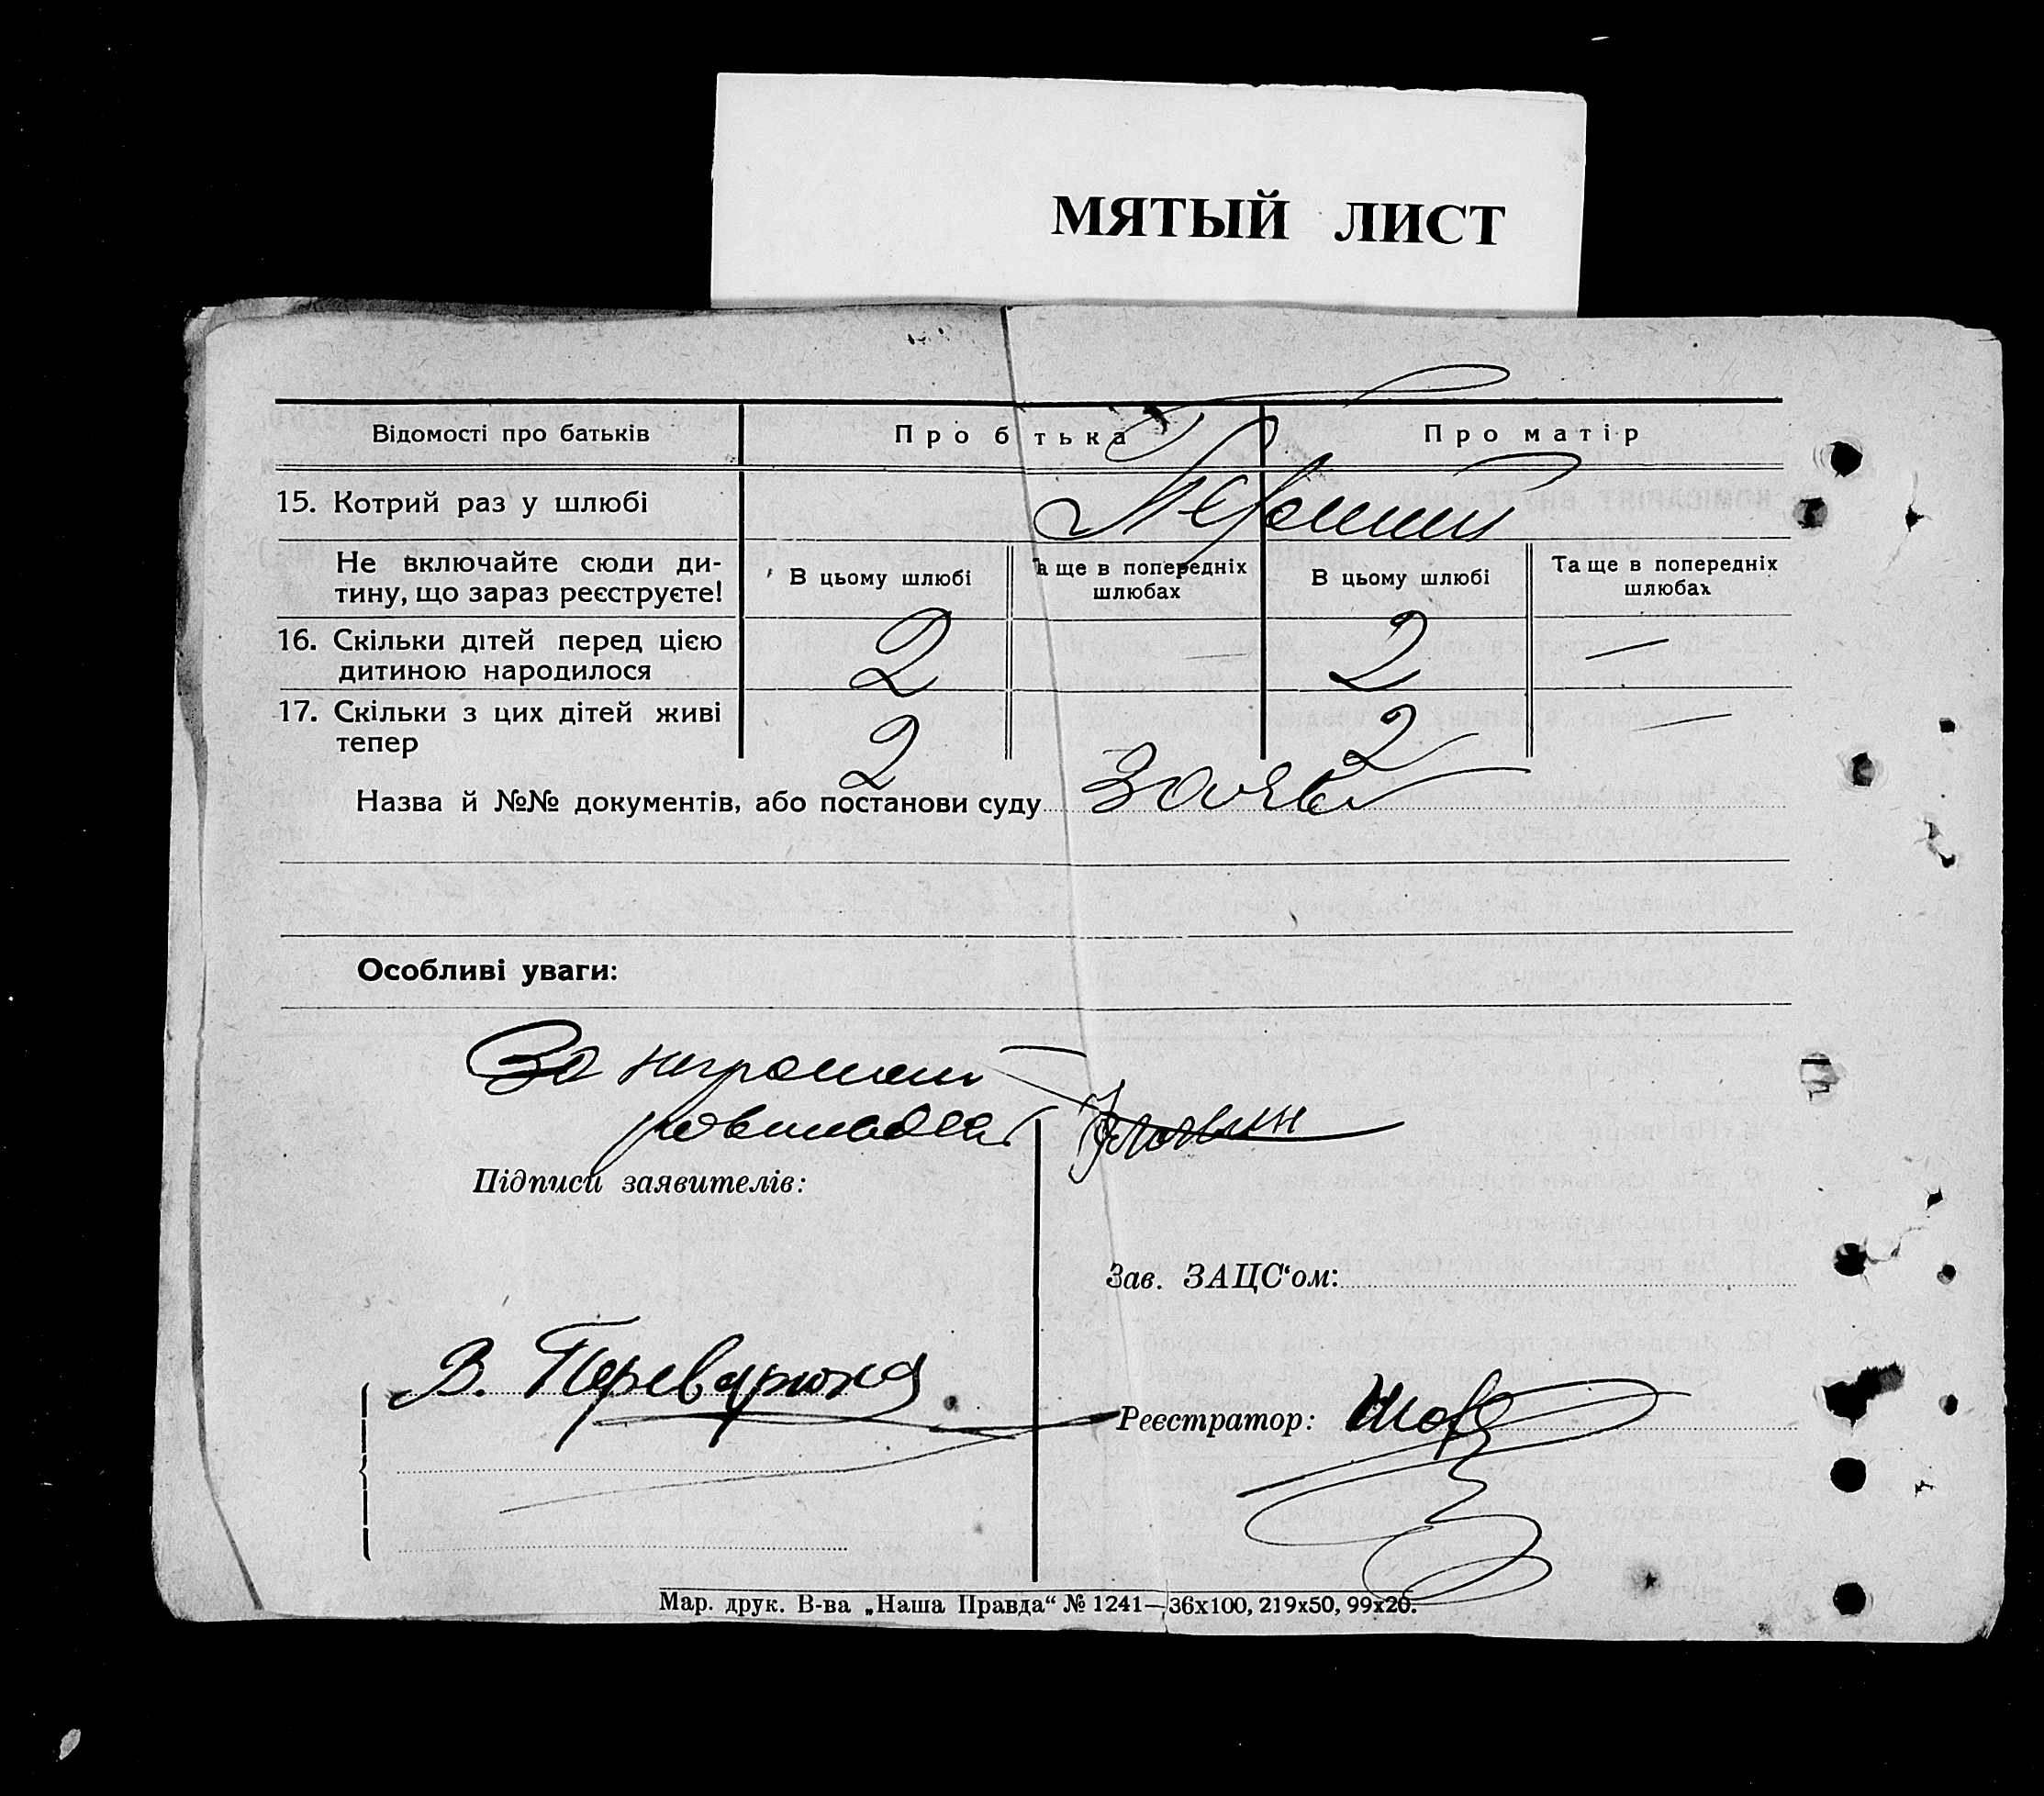 МЯТЫЙ ЛИСТ
Відомості про батьків Про б тька Про матір
15. Котрий раз у шлюбі Перший
Не включайте сюди ди-
тину, що зараз реєструєте!
В цьому шлюбі
а ще в попередніх
шлюбах
В цьому шлюбі
Та ще в попередніх
шлюбах
16. Скільки дітей перед цією
дитиною народилося
2 — 2 —
17. Скільки з цих дітей живі
тепер
2 2 —
Назва й №№ документів, або постанови суду Заява
Особливі уваги:
За
Підписи заявителів:
Зав. ЗАЦС‘ом:
В.
Реєстратор:
Мар. друк. В-ва „Наша Правда“ № 1241—36х100, 219х50, 99х20.